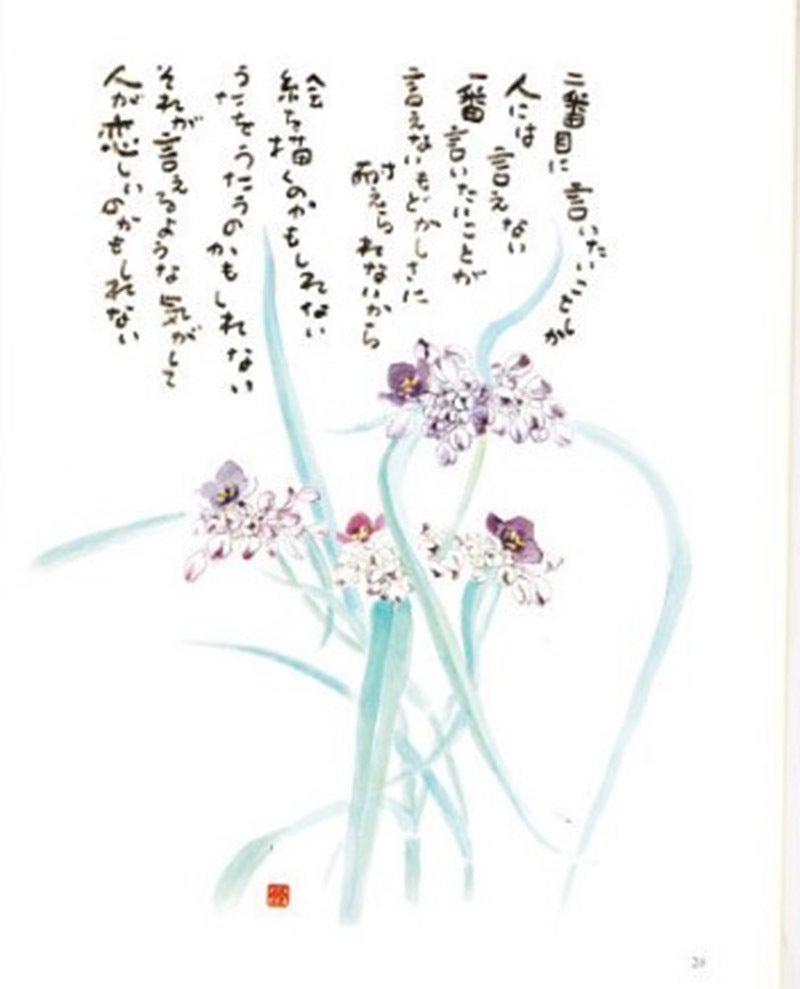 二番目に 言いたいことしか
人には 言えない
一番 言いたいことが
言えないもどかしさに
耐えられないから
絵を描くのかもしれない
うたをうたうのかもしれない
それが言えるような気がして
人が恋しいのかもしれない